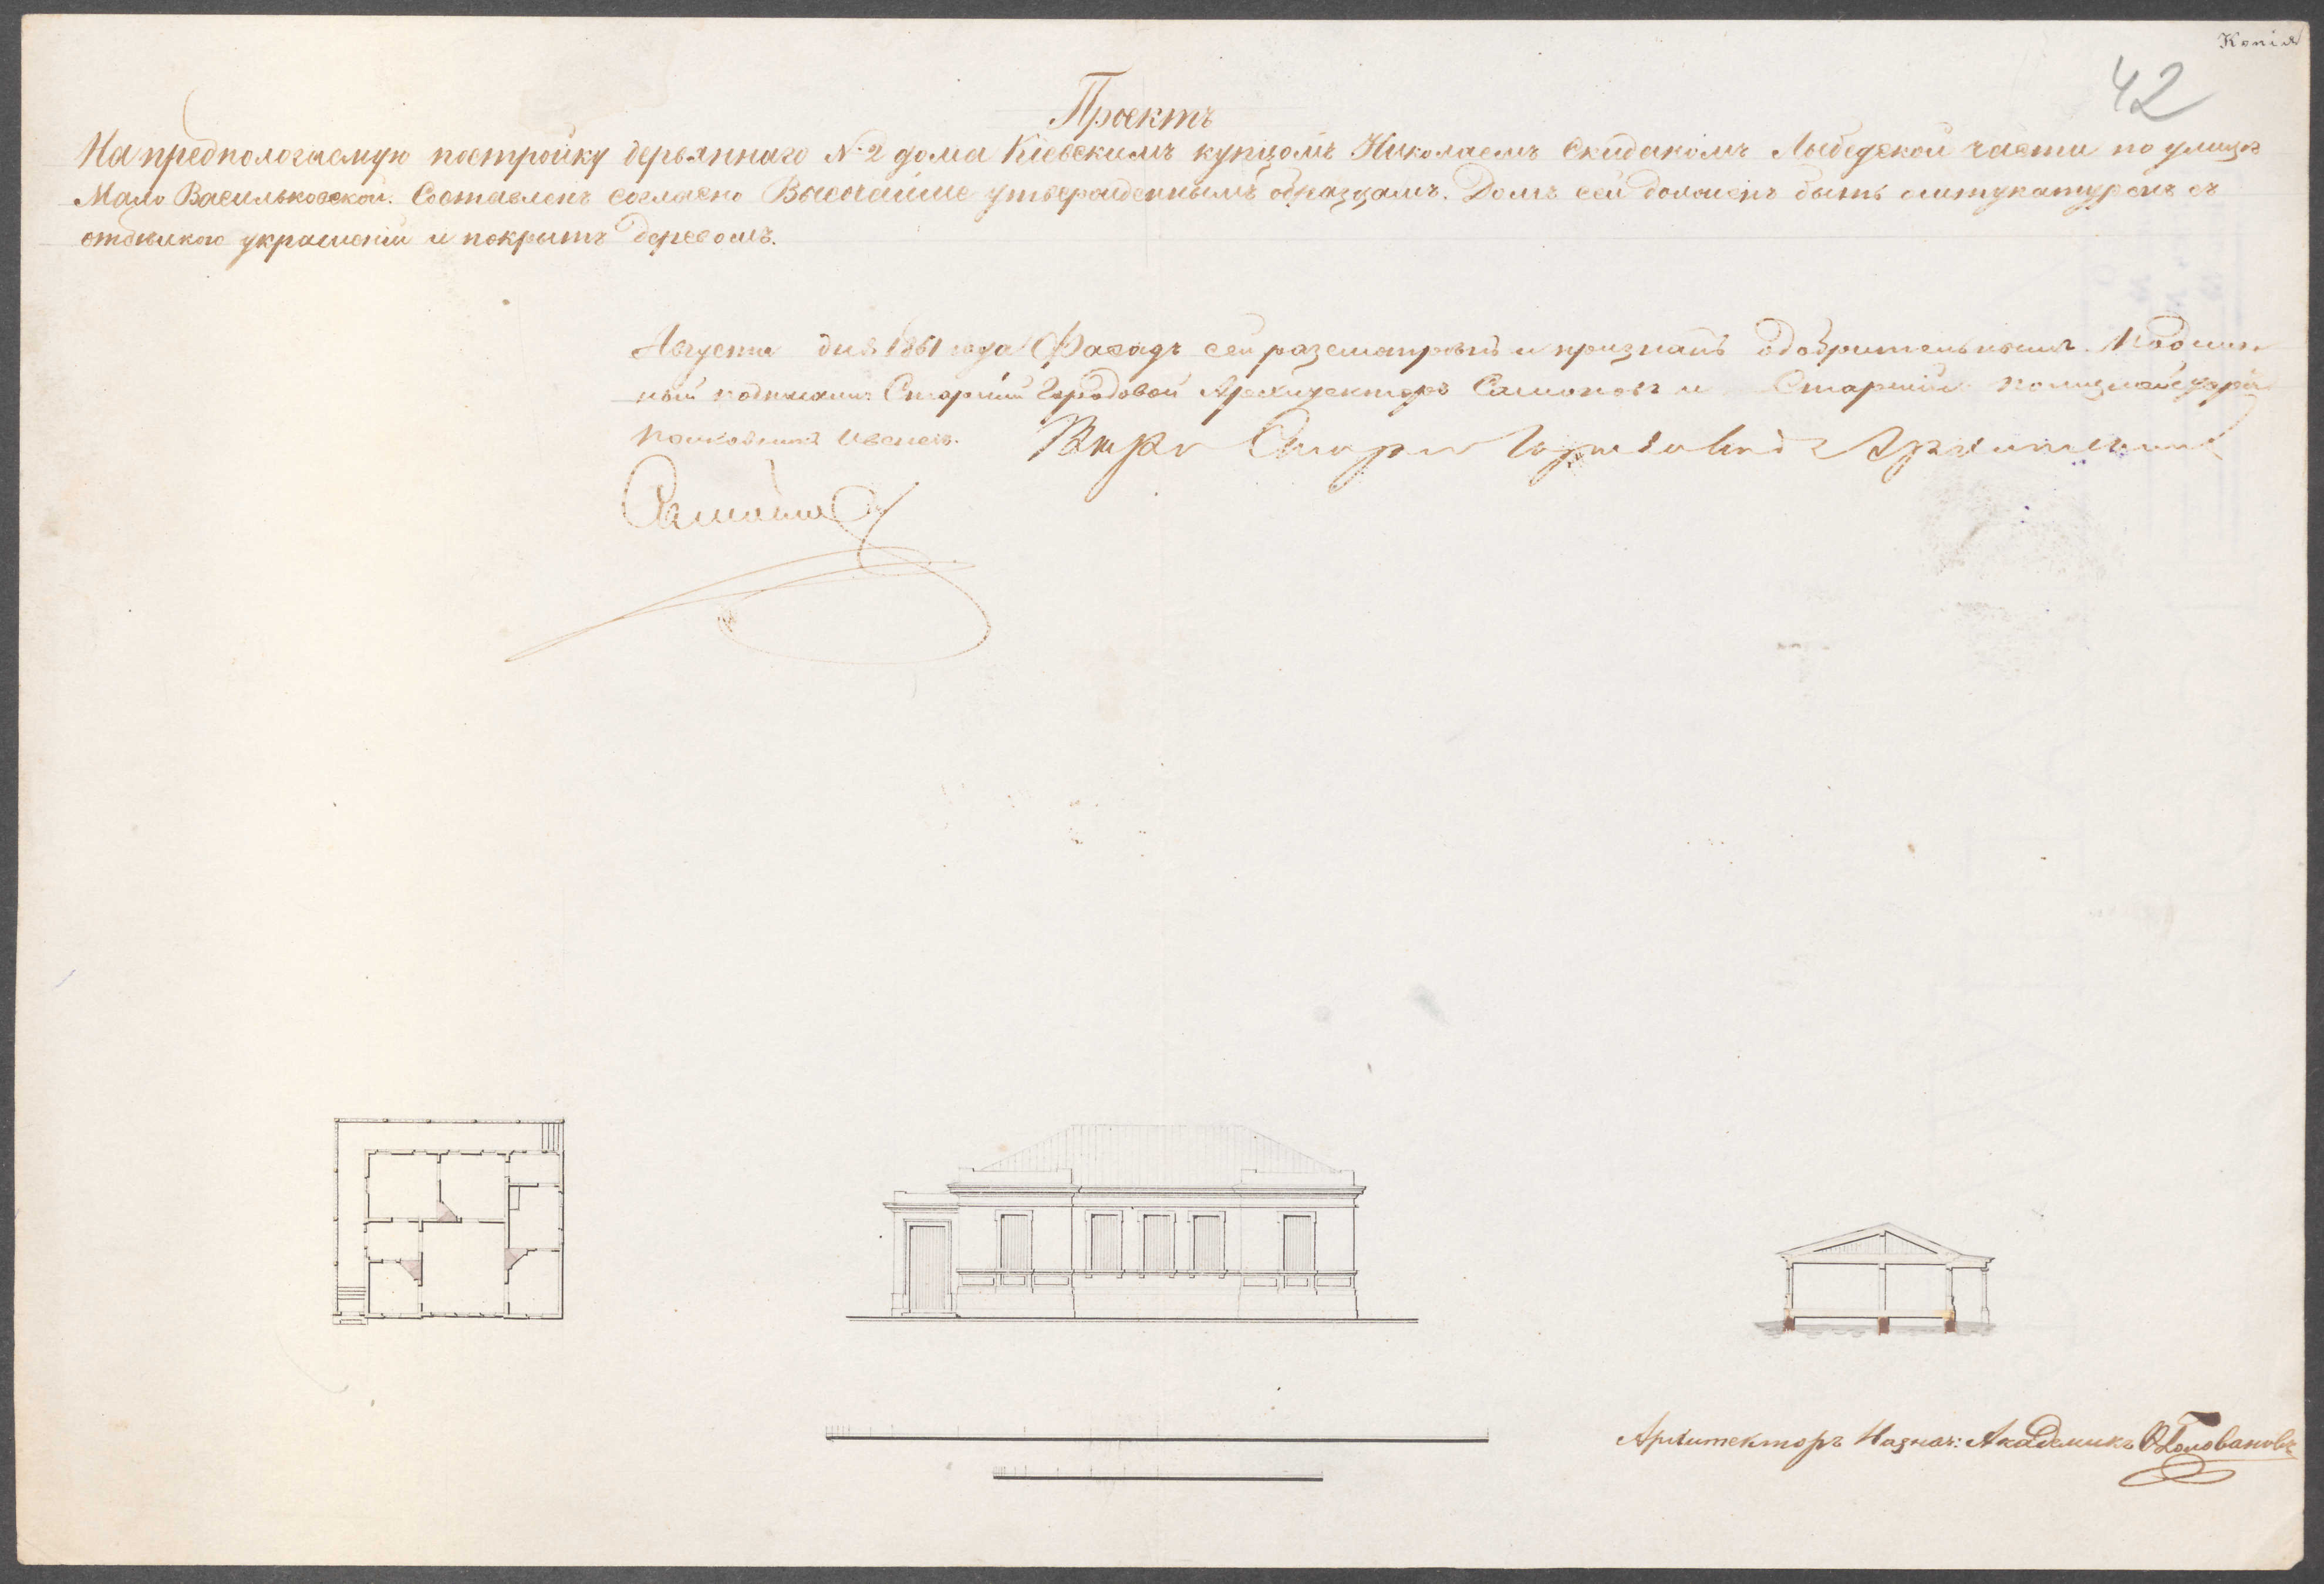 Копія
42
Проектъ
На предпологаемую постройку деревяннаго № 2 дома Кіевскимъ купцомъ Николаемъ Скидакомъ Лыбедской части по улицѣ
Мало Васильковской. Составленъ согласно Высочайше утвержденнымъ образцамъ. Домъ сей долженъ быть оштукатуренъ съ
отдѣлкою украшеній и покрытъ деревомъ.
Августа дня 1861 года Фасадъ сей разсмотрѣнъ и признанъ одобрительнымъ. Подлин
ный подписали: Старшій Городовой Архитекторъ и Старшій полицмейстеръ
Полковникъ Ивенсъ. Вѣрно Городовой Архитекторъ
Архитекторъ Назнач: Академикъ Головановъ